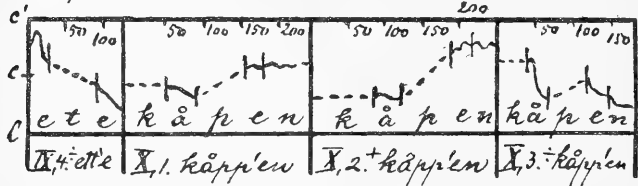 200
c' 50 100 50 100 150 200 50 100 150 50 100 150
c
e t e k å p e n k å p e n k å p e n
C
IX,4.÷ett'e X,1. kåpp'en X,2.+ kåpp'en X,3.÷kåpp'en